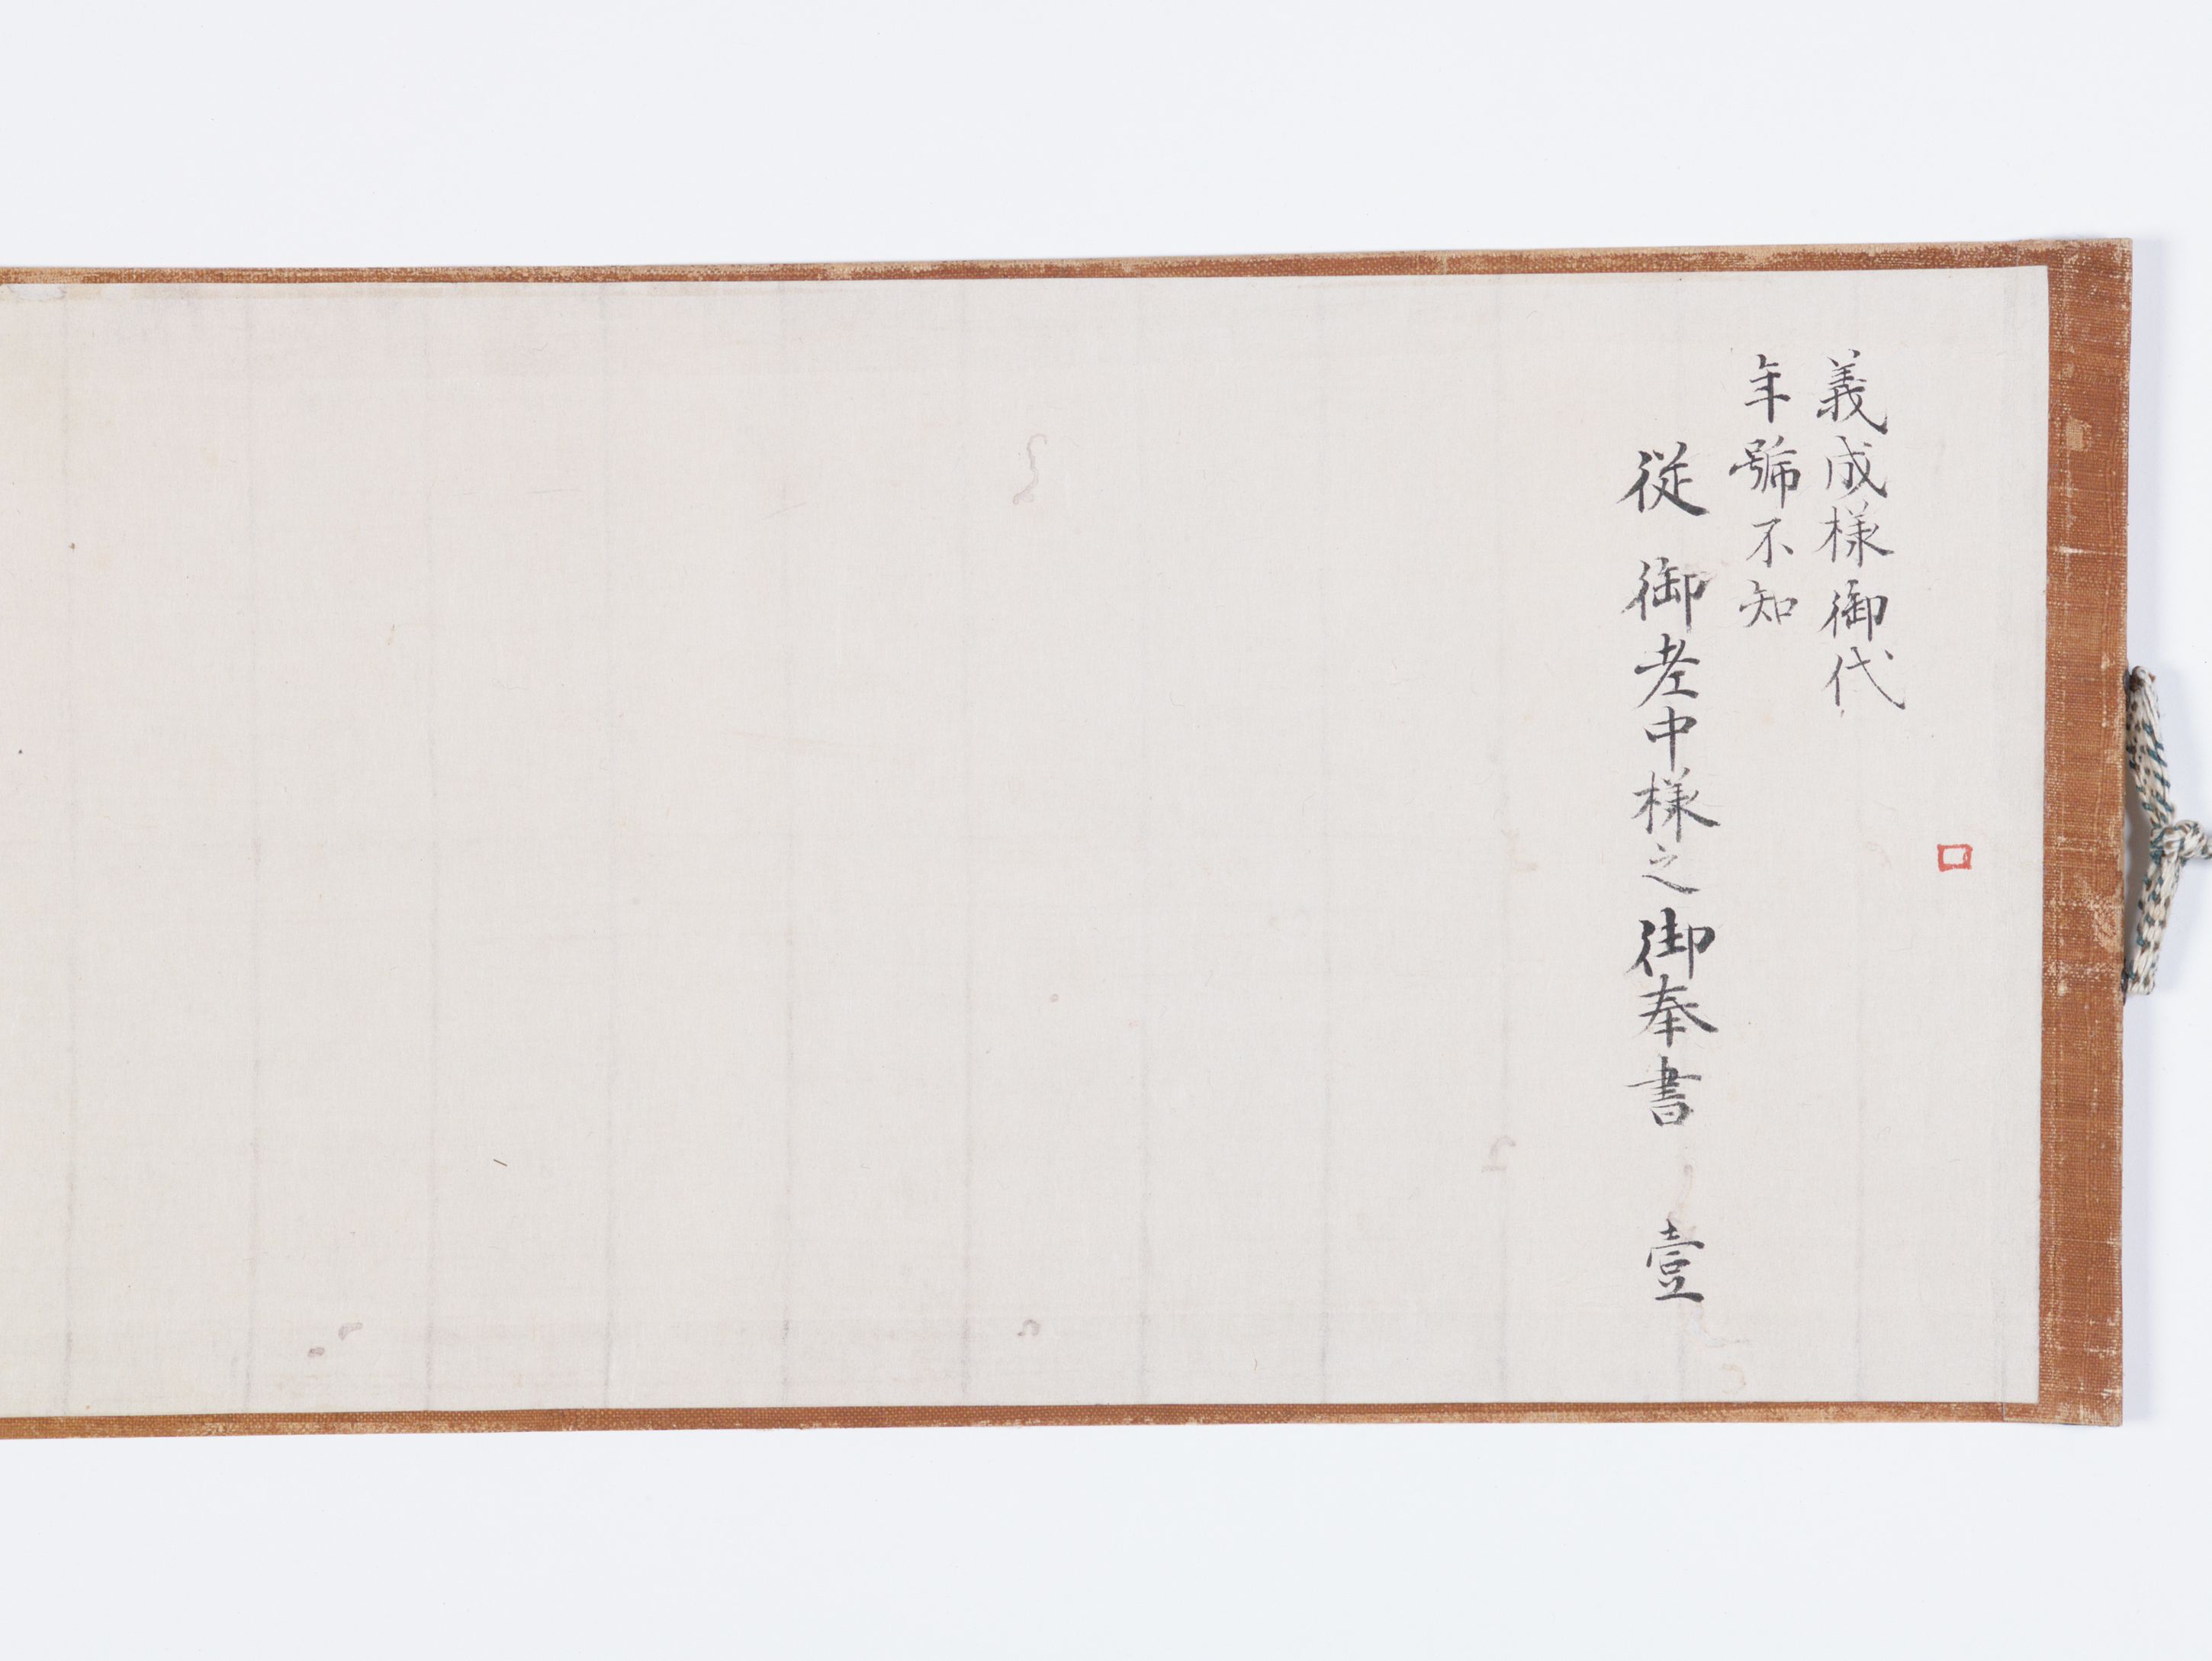 義成様御代
年號不知
従 御老中様之御奉書 壹